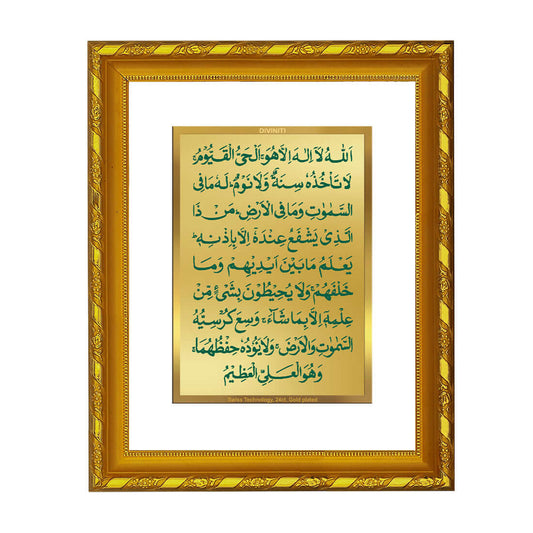 DIVINITI
اَللّٰهُ لَاۤ اِلٰهَ اِلَّا هُوَۚ اَلْحَیُّ الْقَیُّوْمُ
لَا تَاْخُذُهٗ سِنَةٌ وَّلَا نَوْمٌؕ لَهٗ مَا فِی
السَّمٰوٰتِ وَمَا فِی الْاَرْضِؕ مَنْ ذَا
الَّذِیْ یَشْفَعُ عِنْدَهٗۤ اِلَّا بِاِذْنِهٖؕ
یَعْلَمُ مَا بَیْنَ اَیْدِیْهِمْ وَمَا
خَلْفَهُمْۚ وَلَا یُحِیْطُوْنَ بِشَیْءٍ مِّنْ
عِلْمِهٖۤ اِلَّا بِمَا شَآءَۚ وَسِعَ كُرْسِیُّهُ
السَّمٰوٰتِ وَالْاَرْضَۚ وَلَا یَـُٔوْدُهٗ حِفْظُهُمَاۚ
وَهُوَ الْعَلِیُّ الْعَظِیْمُ
Swiss Technology, 24ct. Gold plated